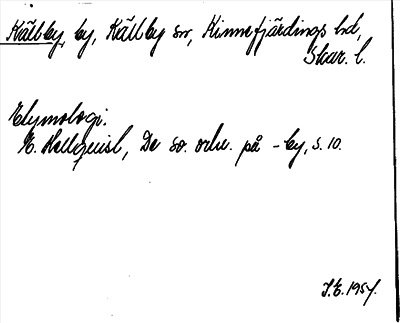 Källby, by, Källby sn, Kinnefjärdings hd,
Skar. l.
Etymologi.
E. Hellquist, De sv. ortn. på -by, s. 10.
I.E. 1954.